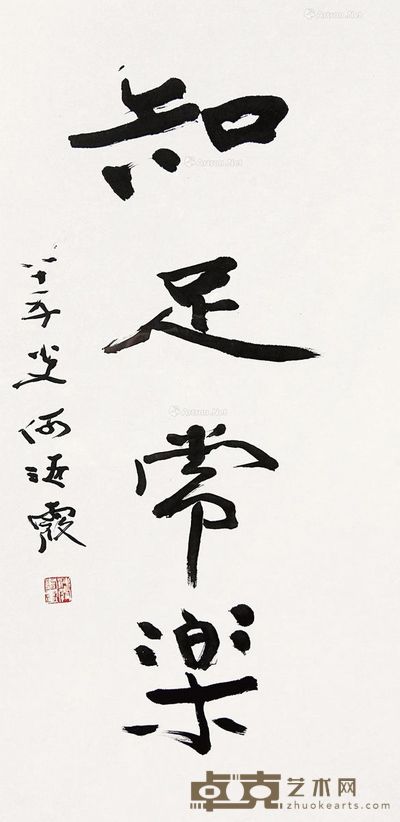 知足常楽
八十叟何海霞
Artron.Net
Artron.Net
Artron.Net
卓克艺术网
zhuokearts.com